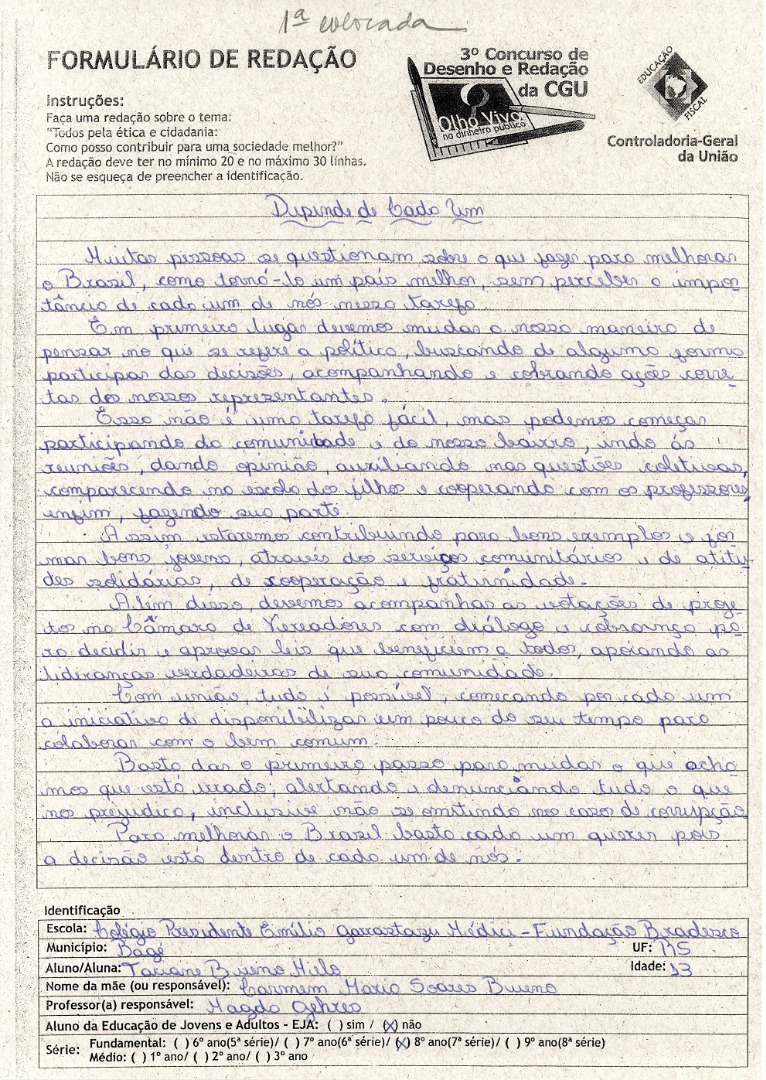 1ª colocada
FORMULÁRIO DE REDAÇÃO
3º Concurso de
Desenho e Redação
da CGU
Olho Vivo
no dinheiro público
EDUCAÇÃO
FISCAL
Controladoria-Geral
da União
Instruções:
Faça uma redação sobre o tema:
"Todos pela ética e cidadania:
Como posso contribuir para uma sociedade melhor?"
A redação deve ter no mínimo 20 e no máximo 30 linhas.
Não se esqueça de preencher a identificação.
Depende de Cada Um
Muitas pessoas se questionam sobre o que fazer para melhorar
o Brasil, como torná-lo um país melhor, sem perceber a impor-
tância de cada um de nós nessa tarefa.
Em primeiro lugar devemos mudar a nossa maneira de
pensar no que se refere a política, buscando de alguma forma
participar das decisões, acompanhando e cobrando ações corre-
tas dos nossos representantes.
Essa não é uma tarefa fácil, mas podemos começar
participando da comunidade e do nosso bairro, indo às
reuniões, dando opinião, auxiliando nas questões coletivas,
comparecendo na escola dos filhos e cooperando com os professores,
enfim, fazendo sua parte.
Assim estaremos contribuindo para bons exemplos e for
mar bons jovens, através dos serviços comunitários e de atitu-
des solidárias, de cooperação e fraternidade.
Além disso, devemos acompanhar as votações de proje-
tos na Câmara de Vereadores com diálogo e cobrança pa-
ra decidir e aprovar leis que beneficiem a todos, apoiando as
lideranças verdadeiras de sua comunidade.
Com união, tudo é possível, começando por cada um
a iniciativa di disponibilizar um pouco do seu tempo para
colaborar com o bem comum.
Basta dar o primeiro passo para mudar o que acha-
mos que está errado, alertando e denunciando tudo o que
nos prejudica, inclusive não se omitindo nos casos de corrupção.
Para melhorar o Brasil basta cada um querer pois
a decisão está dentro de cada um de nós.
Identificação
Escola: Colégio Presidente Emílio Garrastazu Médici - Fundação Bradesco
Município: Bagé UF: RS
Aluno/Aluna: Taciane Bueno Melo Idade: 13
Nome da mãe (ou responsável): Carmem Maria Soares Bueno
Professor(a) responsável: Magda Gehres
Aluno da Educação de Jovens e Adultos - EJA: ( ) sim / (x) não
Série: Fundamental: ( ) 6º ano(5ª série)/ ( ) 7º ano(6ª série)/ (x) 8º ano(7ª série)/ ( ) 9º ano(8ª série)
Médio: ( ) 1º ano/ ( ) 2º ano/ ( ) 3º ano